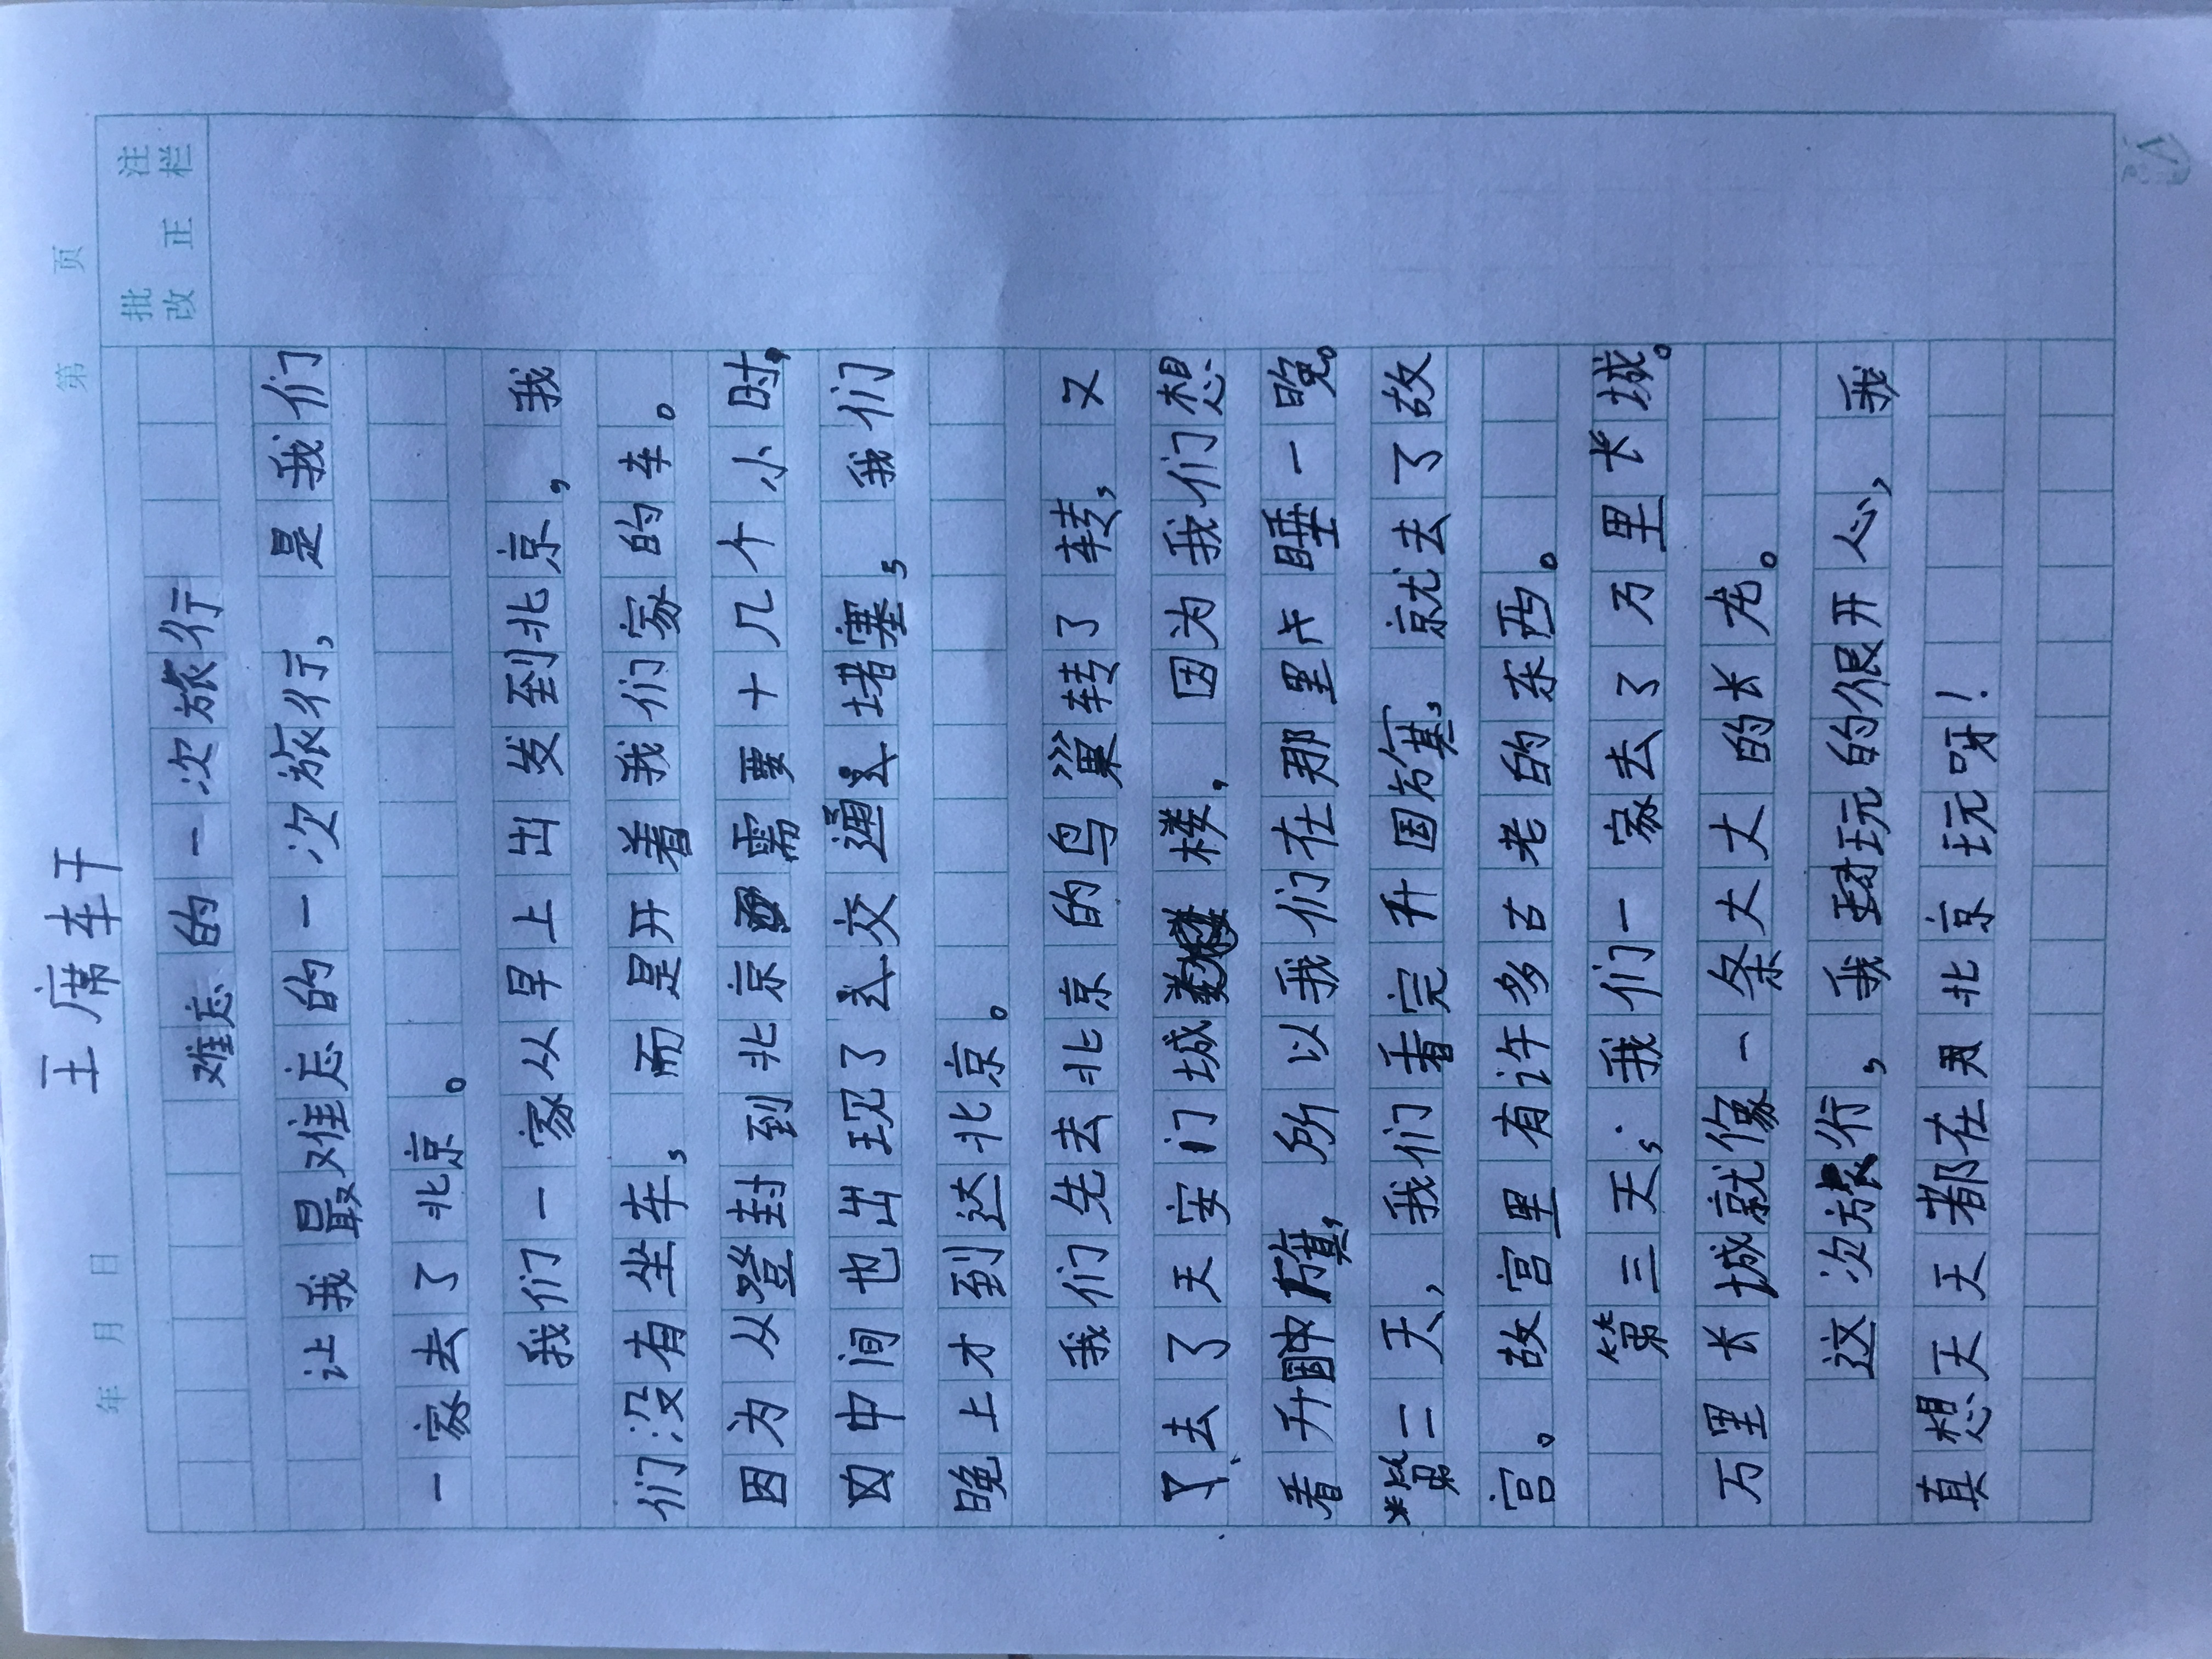 王席车干
年 月 日
第 页
批改 正 注栏
难忘的一次旅行
让我最难忘的一次旅行，是我们
一家去了北京。
我们一家从早上出发到北京，我
们没有坐车，而是开着我们家的车。
因为从登封到北京需要十几个小时，
中间也出现了交通堵塞，我们
晚上才到达北京。
我们先去北京的鸟巢转了转，又
去了天安门城楼，因为我们想
看升，所以我们在那里睡一晚。
第二天，我们看完升国，就去了故
宫。故宫里有许多古老的东西。
第三天，我们一家去了万里长城。
万里长城就像一条大大的长龙。
这次旅行，我玩的很开心，我
真想天天都在北京玩呀！